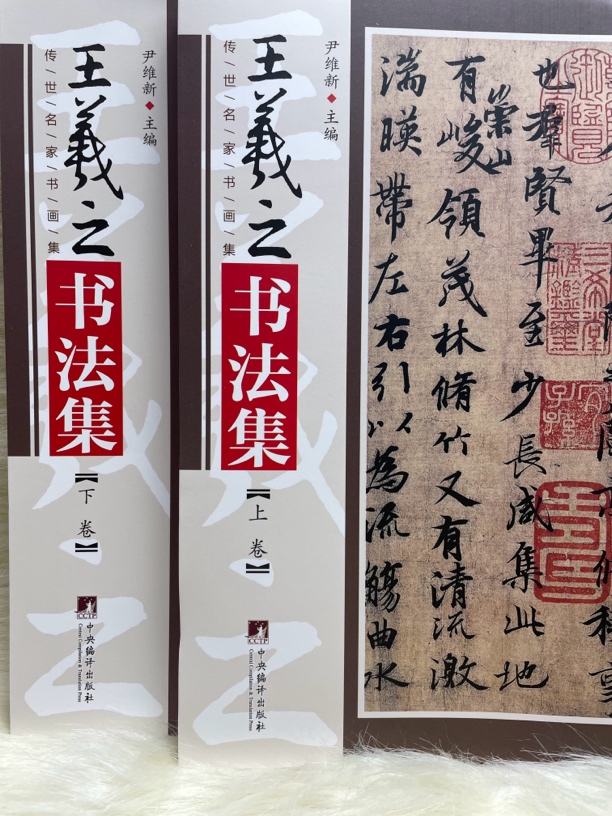 传/世/名/家/书/画/集
王羲之
尹维新◆主编
书法集
【下卷】
CCTP
中央编译出版社
Central Compilation & Translation Press
传/世/名/家/书/画/集
王羲之
尹维新◆主编
书法集
【上卷】
CCTP
中央编译出版社
Central Compilation & Translation Press
也群賢畢至少長咸集此地
有崇山峻領茂林脩竹又有清流激
湍暎帶左右引以為流觴曲水